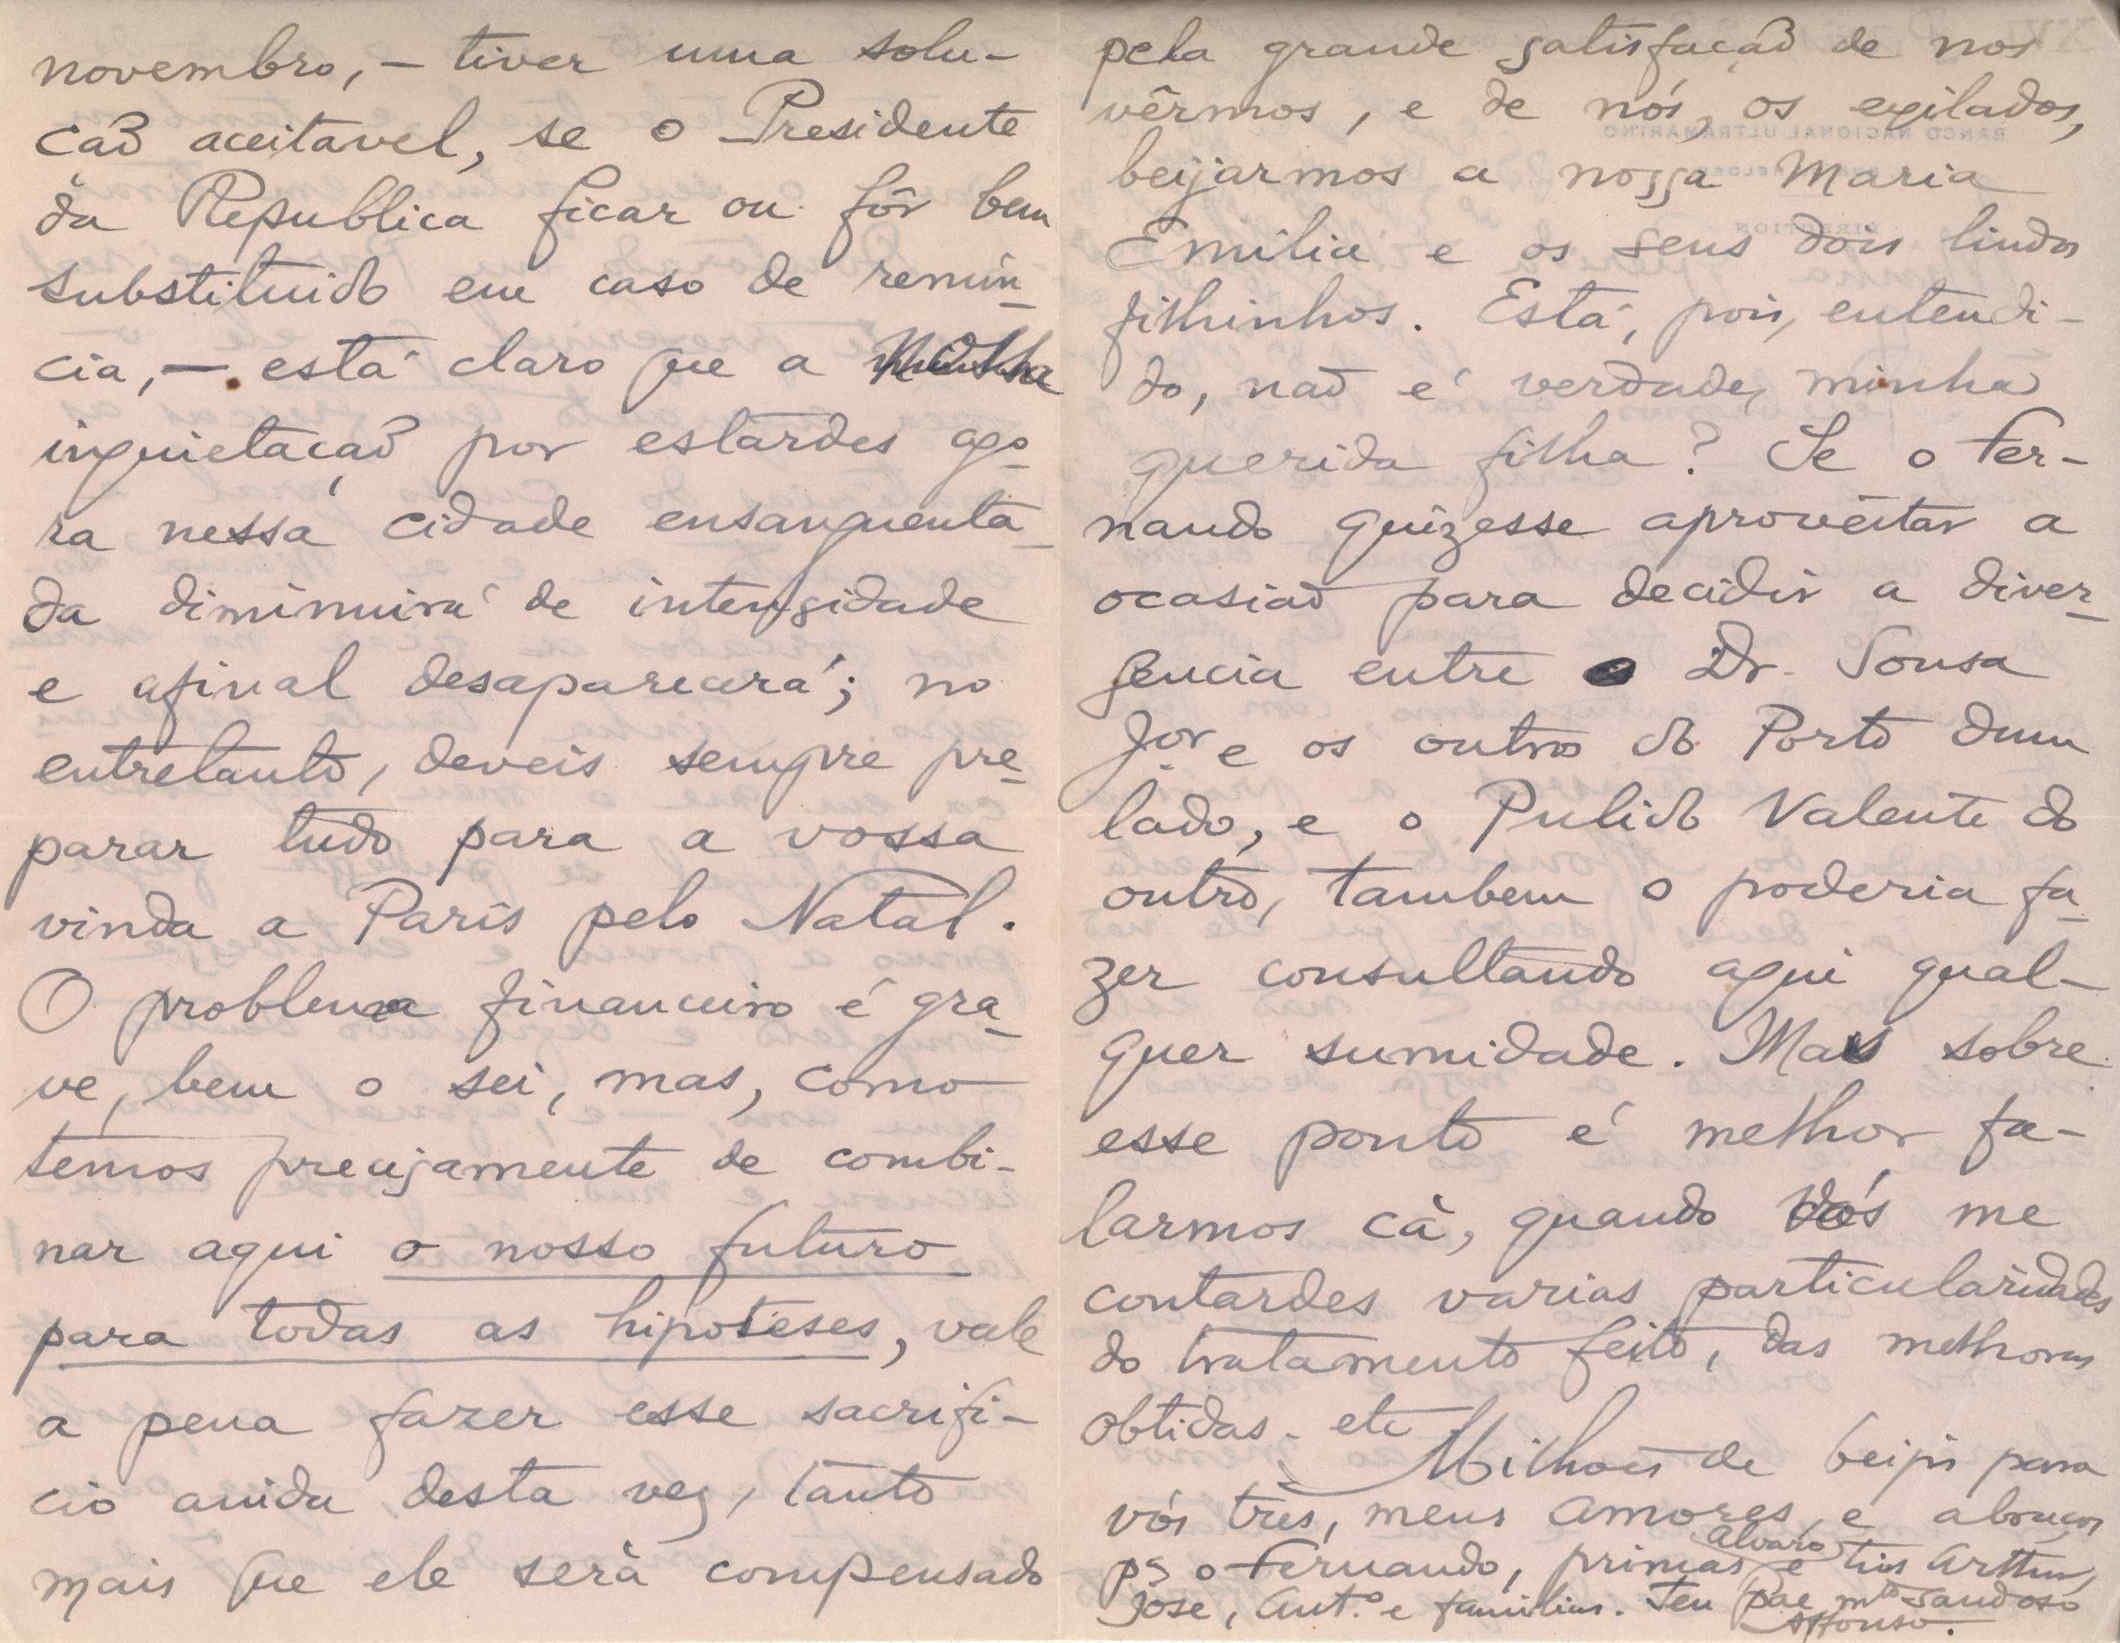 novembro, – tiver uma solu-
çaõ aceitavel, se o Presidente
da Republica ficar ou fôr bem
substituido em caso de renún-
cia, – está claro que a minha
inquietaçaõ por estardes ago-
ra nessa cidade ensanguenta-
da diminuirá de intensidade
e afinal desaparecerá; no
entretanto, deveis sempre pre-
parar tudo para a vossa
vinda a Paris pelo Natal.
O problema financeiro é gra-
ve, bem o sei, mas, como
temos precisamente de combi-
nar aqui o nosso futuro
para todas as hipoteses, vale
a pena fazer esse sacrifi-
cio ainda desta vez, tanto
mais que ele será compensado
pela grande satisfaçaõ de nos
vêrmos, e de nós, os exilados,
beijarmos a nossa Maria
Emilia e os seus dois lindos
filhinhos. Está, pois, entendi-
do, naõ é verdade, minha
querida filha? Se o Fer-
nando quizesse aproveitar a
ocasiaõ para decidir a diver-
gencia entre o Dr. Sousa
Jor e os outros do Porto dum
lado, e o Pulido Valente do
outro, tambem o poderia fa-
zer consultando aqui qual-
quer sumidade. Mas sobre
esse ponto é melhor fa-
larmos cá, quando vós me
contardes varias particularidades
do tratamento feito, das melhoras
obtidas. etc
Milhoes de beijos para
vós tres, meus amores, e abraços
pª o Fernando, primas Alvaro e tios Arthur,
José, Ant.º e familias. Teu Pae mtº saudoso
Affonso.
BANCO NACIONAL ULTRAMARINO